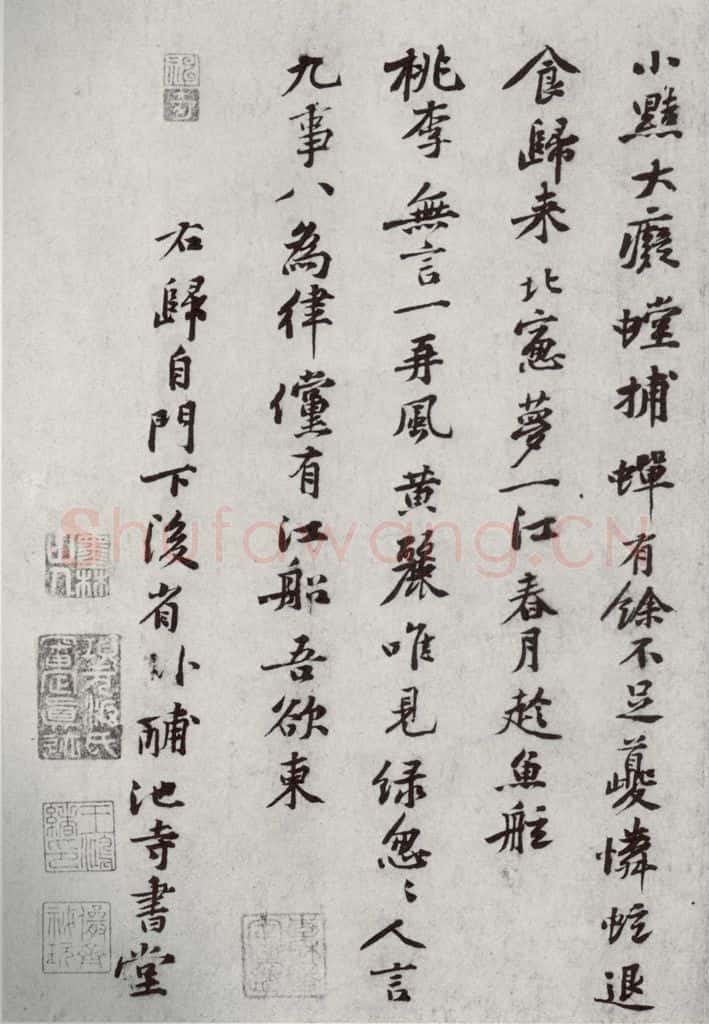 小黠大癡螳捕蟬有餘不足夔憐蚿退
食歸来北窓夢一江春月趁魚舡
桃李無言一再風黄麗唯見緑怱〻人言
九事八為律儻有江船吾欲東
右歸自門下後省卧酺池寺書堂
Shufawang.CN